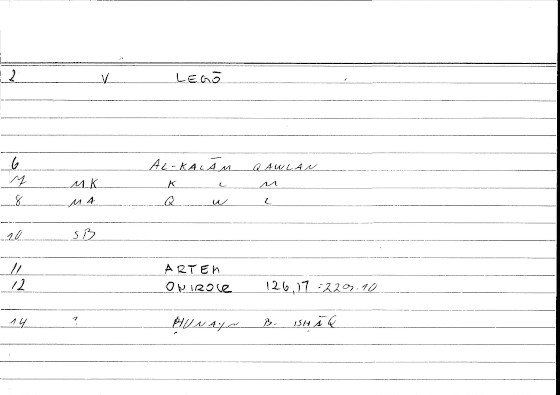 2 V LEGŌ
6 AL-KALĀM QAWLAN
7 MK K L M
8 MA Q W L
10 SB
11 ARTEM
12 ONIROCR 126,17 = 229.10
14 ? ḤUNAYN B. ISḤĀQ